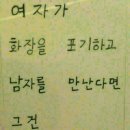 여자가
화장을 포기하고
남자를 만난다면
그건